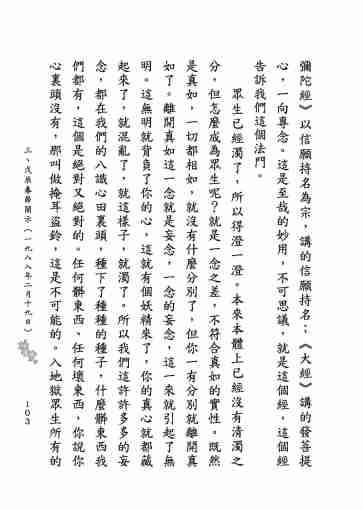 彌陀經》以信願持名為宗，講的信願持名；《大經》講的發菩提
心，一向專念。這是至哉的妙用，不可思議，就是這個經，這個經
告訴我們這個法門。
眾生已經濁了，所以得澄一澄。本來本體上已經沒有清濁之
分，但怎麼成為眾生呢？就是一念之差，不符合真如的實性。既然
是真如，一切都相如，就沒有什麼分別了，但你一有分別就離開真
如了。離開真如這一念就是妄念，一念的妄念，這一來就引起了無
明。這無明就背負了你的心，這就有個妖精來了，你的真心就都藏
起來了，就混亂了，就這樣子，就濁了。所以我們這許許多多的妄
念，都在我們的八識心田裏頭，種下了種種的種子，什麼髒東西我
們都有，這個是絕對又絕對的。任何髒東西、任何壞東西，你說你
心裏頭沒有，那叫做掩耳盜鈴，這是不可能的。入地獄眾生所有的
三、戊辰春節開示（一九八八年二月十九日）
103